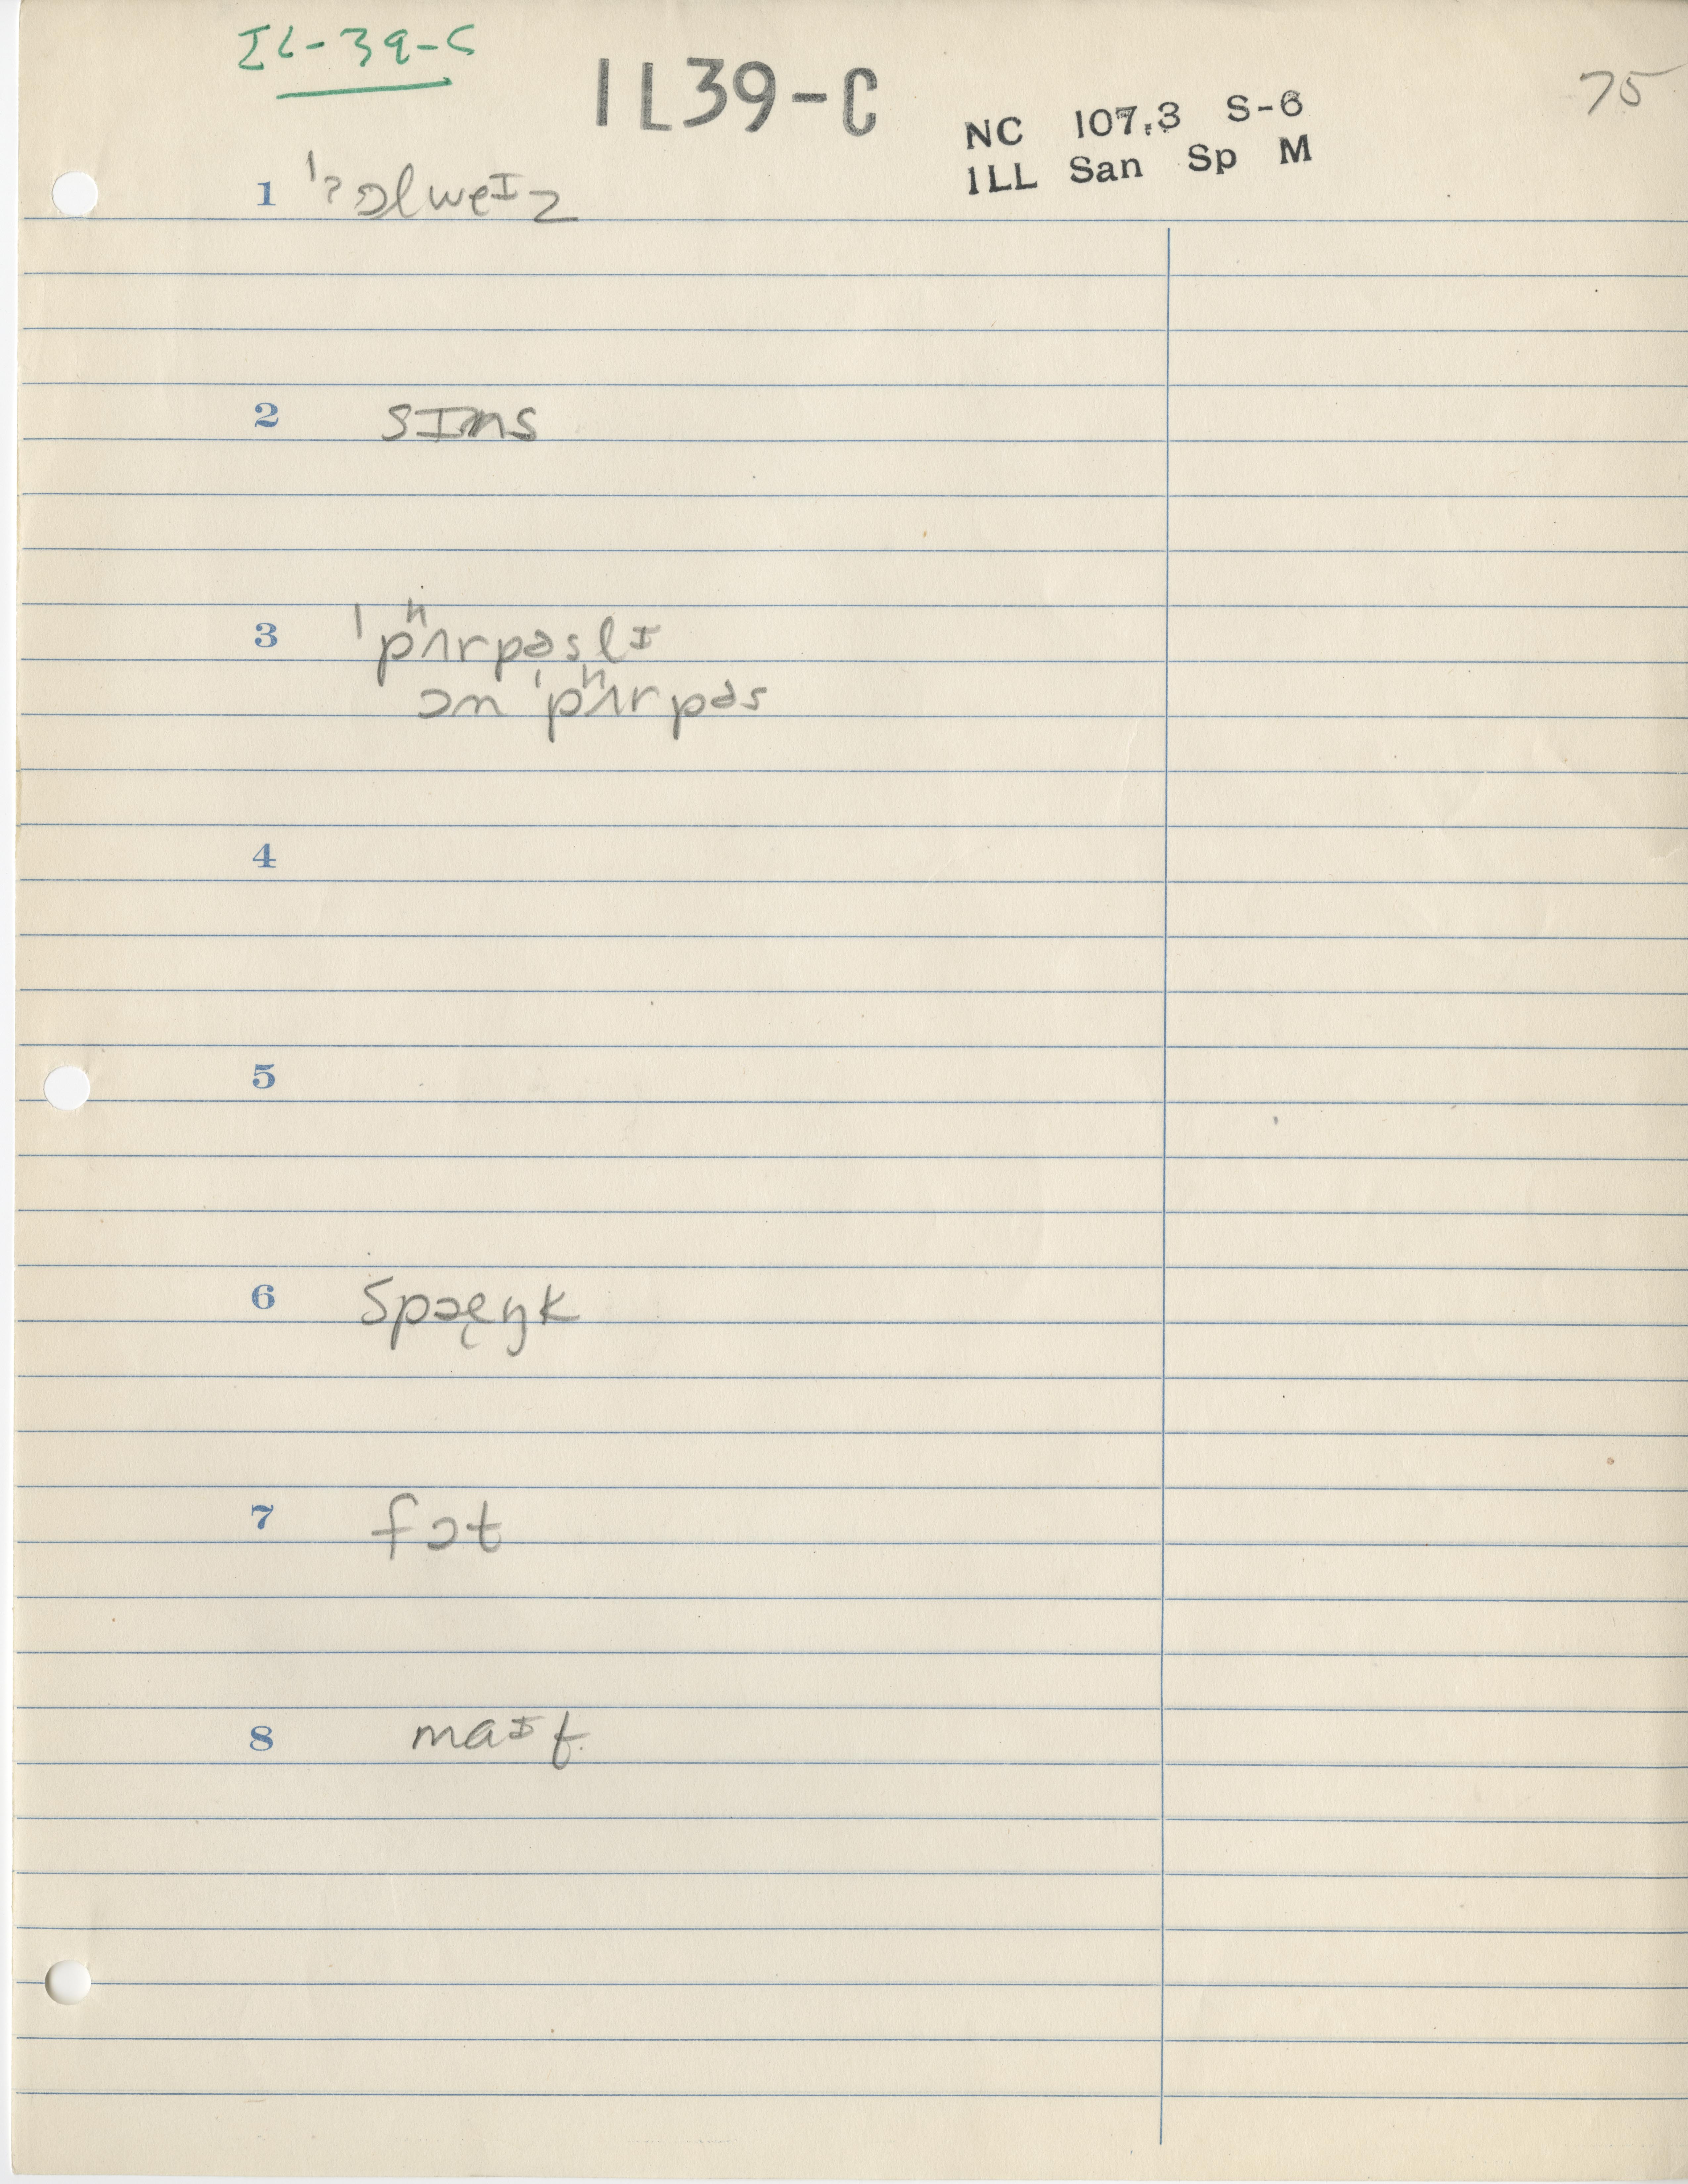 IL-39-C
1L39-C
75
NC 107.3 S-6
1LL San Sp M
1 ˈʔɔlweᶦz
2 sɪns
3 ˈpʰʌrpəslɪ
ɔn ˈpʰʌrpəs
4
5
6 spɔeŋk
7 fɔt
8 maᶦt